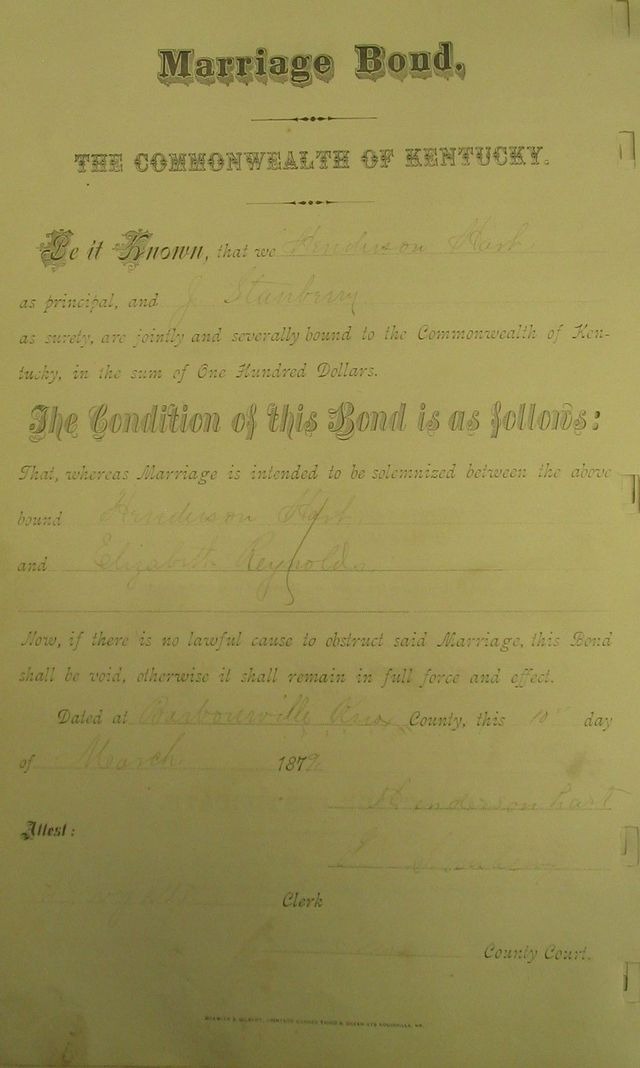 Marriage Bond,
THE COMMONWEALTH OF KENTUCKY.
Be it Known, that we Henderson Hart
as principal, and J Stanberry
as surety, are jointly and severally bound to the Commonwealth of Ken-
tucky, in the sum of One Hundred Dollars.
The Condition of this Bond is as follows:
That, whereas Marriage is intended to be solemnized between the above
bound Henderson Hart
and Elizabeth Reynolds
Now, if there is no lawful cause to obstruct said Marriage, this Bond
shall be void, otherwise it shall remain in full force and effect.
Dated at Barbourville Knox County, this 10" day
of March 1879
Henderson hart
Attest:
Clerk
County Court.